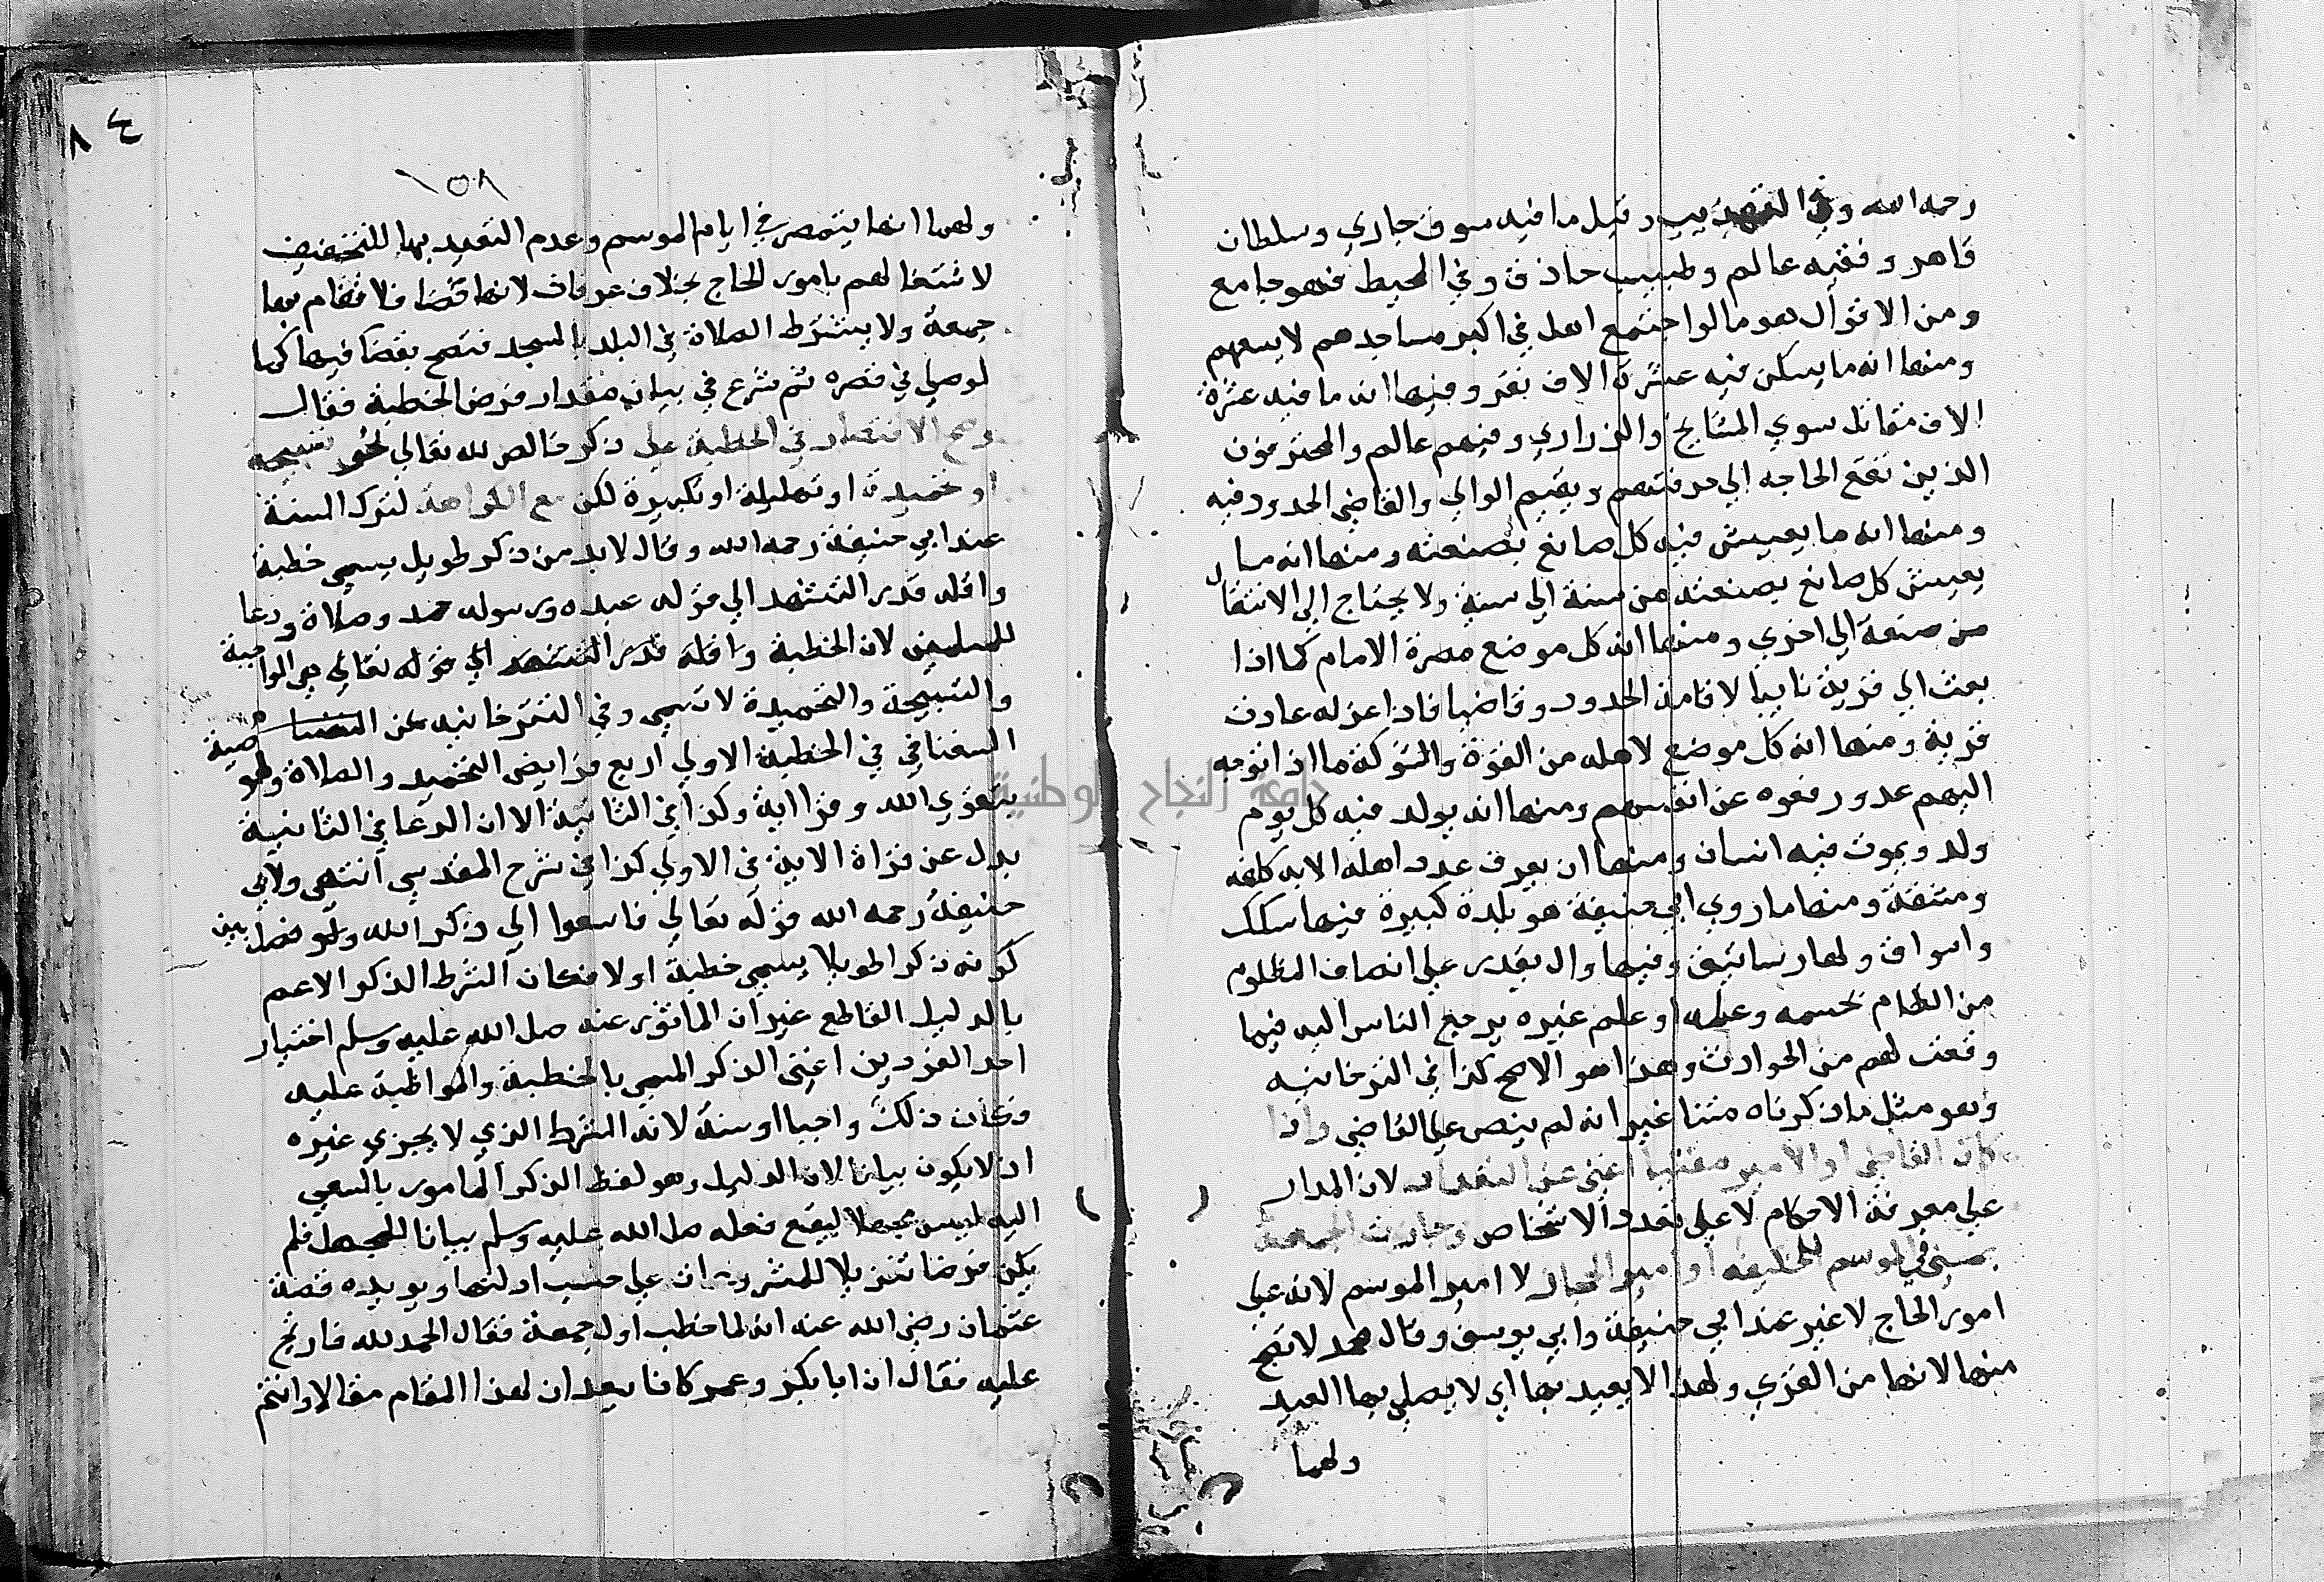 رحمه الله وفي التهذيب وقيل ما فيه سوق جاري وسلطان
قاهر وفقيه عالم وطبيب حاذق وفي المحيط فهو جامع
ومن الاقوال هو ما لو اجتمع اهله في اكبر مساجدهم لا يسعهم
ومنها انه ما يسكن فيه عشرة الاف نفر وفيها انه ما فيه عشرة
الاف مقاتل سوي المشايخ والذراري وفيهم عالم والمحترفون
الذين تقع الحاجه الي حرفتهم ويقيم الوالي والقاضي الحدود فيه
ومنها انه ما يعيش فيه كل صانع بصنعته ومنها انه ما
يعيش كل صانع بصنعته من سنة الي سنة ولا يحتاج الي الانتقال
من صنعة الي اخري ومنها انه كل موضع مصره الامام كما اذا
بعث الي قرية نايبا لاقامة الحدود وقاضيا فاذا عزله عادت
قرية ومنها انه كل موضع لاهله من القوة والشوكة ما اذا توجه
اليهم عدو دفعوه عن انفسهم ومنها انه يولد فيه كل يوم
ولد ويموت فيه انسان ومنها ان يعرف عدد اهله الا بكلفه
ومشقة ومنها ما روي ابي حنيفة هو بلدة كبيرة فيها سكك
واسواق ولها رساتيق وفيها وال يقدر علي انصاف المظلوم
من الظالم بحسمه وعلمه او علم غيره يرجع الناس اليه فيما
وقعت لهم من الحوادث وهذا هو الاصح كذا في التترخانيه
وهو مثل ما ذكرناه متنا غير انه لم ينص علي القاضي واذا
كان القاضي او الامير مفتيا اغني عن التعداد لان المدار
علي معرفة الاحكام لا علي تعدد الاشخاص وجازت الجمعة
بمني في الموسم للخليفه او امير الحجاز لا امير الموسم لانه علي
امور الحاج لا غير عند ابي حنيفة وابي يوسف وقال محمد لا تصح
منها لانها من القري ولهذا لا يعيد بها اي لا يصلي بها العيد
ولهما
٨٤
١٥٨
ولهما انها يتمصر في ايام الموسم وعدم التعييد بها للتخفيف
لاشتغالهم بامور الحاج بخلاف عرفات لانها فضا فلا تقام بها
جمعة ولا يشترط الصلاة في البلد بالمسجد فتصح بفضا فيها كما
لو صلي في قصره ثم شرع في بيان مقدار فرض الخطبة فقال
وصح الاقتصار في الخطبة علي ذكر خالص لله تعالي نحو تسبيحه
او تحميدة او تهليلة او تكبيرة لكن مع الكراهة لترك السنة
عند ابي حنيفة رحمه الله وقال لا بد من ذكر طويل يسمي خطبة
واقله قدر التشهد الي قوله عبده ورسوله حمد وصلاة ودعا
للمسلمين لان الخطبة واقله قدر التشهد الي قوله تعالي هي الواجبة
والتسبيحة والتحميدة لا تسمي وفي التترخانيه عن النصا
السغناقي في الخطبة الاولي اربع فرايض التحميد والصلاة والوصية
بتقوي الله وقرا اية وكذا في الثانية الا ان الدعا في الثانية
بدل عن قراة الاية في الاولي كذا في شرح المقدسي انتهي ولابي
حنيفة رحمه الله قوله تعالي فاسعوا الي ذكر الله ولو فصل بين
كونه ذكرا طويلا يسمي خطبة او لا فكان الشرط الذكر الاعم
بالدليل القاطع غير ان الماثور عنه صلي الله عليه وسلم اختيار
احد الفردين اعني الذكر المسمي بالخطبة والمواظبة عليه
وكان ذلك واجبا او سنة لانه الشرط الذي لا يجزي غيره
اذ لا يكون بيانا لان الدليل وهو لفظ الذكر المامور بالسعي
اليه ليس مجملا ليقع فعله صلي الله عليه وسلم بيانا للمجمل فلم
يكن فرضا تنزيلا للمشروعات علي حسب ادلتها ويويده قصة
عثمان رضي الله عنه انه لما خطب اول جمعة فقال الحمد لله فارتج
عليه فقال ان ابا بكر وعمر كانا يعدان لهذا المقام مقالا وانتم
جامعة النجاح الوطنية